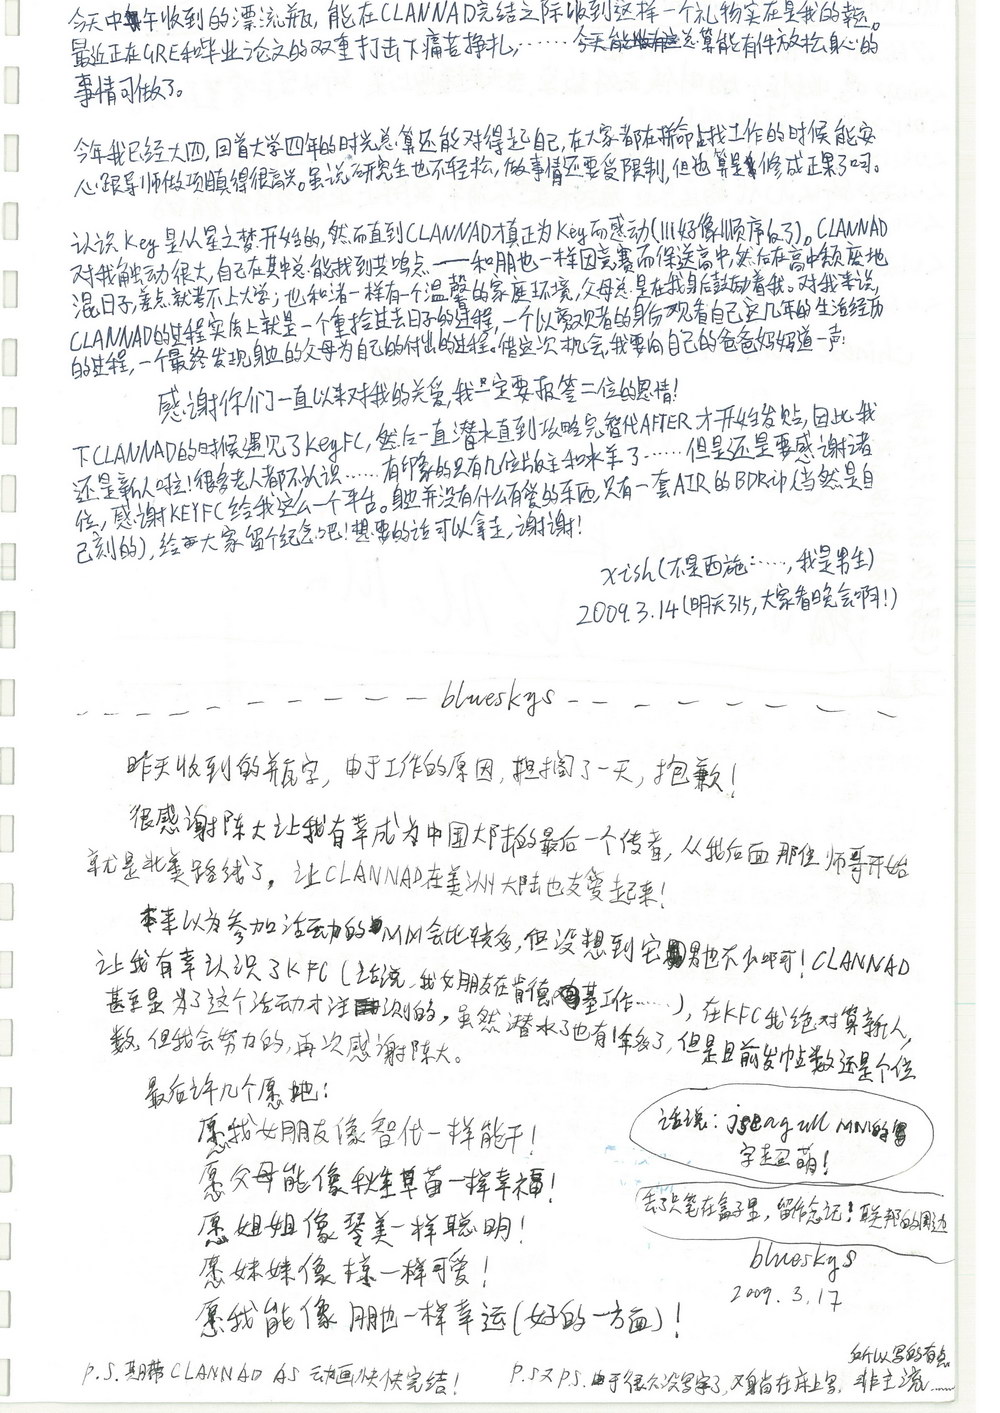 今天中午收到的漂流瓶，能在CLANNAD完结之际收到这样一个礼物实在是我的幸运。
最近正在GRE和毕业论文的双重打击下痛苦挣扎，……今天总算能有件放松身心的
事情可做了。
今年我已经大四，回首大学四年的时光总算还能对得起自己，在大家都在拼命找工作的时候能安
心跟导师做项目真得很高兴。虽说研究生也不轻松，做事情还要受限制，但也算是修成正果了吧。
认识Key是从星之梦开始的，然而直到CLANNAD才真正为Key而感动(川川好像顺序反了)。CLANNAD
对我触动很大，自己在其中总能找到共鸣点——和朋也一样因竞赛而保送高中，然后在高中颓废地
混日子，差点就考不上大学；也和渚一样有一个温馨的家庭环境，父母总是在我身后鼓励着我。对我来说，
CLANNAD的过程实质上就是一个重拾过去日子的过程，一个以旁观者的身份观看自己这几年的生活经历
的过程，一个最终发现身边的父母为自己的付出的过程。借这次机会，我要向自己的爸爸妈妈道一声：
感谢你们一直以来对我的关爱，我一定要报答二位的恩情！
下CLANNAD的时候遇见了KeyFC，然后一直潜水直到攻略完智代AFTER才开始发贴，因此我
还是新人啦！很多老人都不认识……有印象的只有几位版主和水羊了……但是还是要感谢诸
位，感谢KEYFC给我这么一个平台。身边并没有什么有爱的东西，只有一套AIR的BDRip(当然是自
己刻的)，给大家留个纪念吧！想要的话可以拿走，谢谢！
xish(不是西施……，我是男生)
2009.3.14(明天315，大家看晚会啊！)
blueskys
昨天收到的瓶子，由于工作的原因，担搁了一天，抱歉！
很感谢陈大让我有幸成为中国大陆的最后一个传者，从我后面那位师哥开始
就是北美路线了，让CLANNAD在美洲大陆也友爱起来！
本来以为参加活动的MM会比较多，但没想到宅男也不少呵呵！CLANNAD
让我有幸认识了KFC(话说，我女朋友在肯德基工作……)，在KFC我绝对算新人，
甚至是为了这个活动才注册的，虽然潜水了也有1年多了，但是目前发帖数还是个位
数，但我会努力的，再次感谢陈大。
最后许几个愿吧：
愿我女朋友像智代一样能干！
愿父母能像秋生早苗一样幸福！
愿姐姐像琴美一样聪明！
愿妹妹像椋一样可爱！
愿我能像朋也一样幸运(好的一方面)！
话说：jseagull MM的
字超萌！
丢了只笔在盒子里，留作念记！联邦的周边
blueskys
2009.3.17
P.S. 期带CLANNAD AS 动画快快完结！
P.S又P.S. 由于很久没写字了，又身尚在床上写，
所以写的有点
非主流……